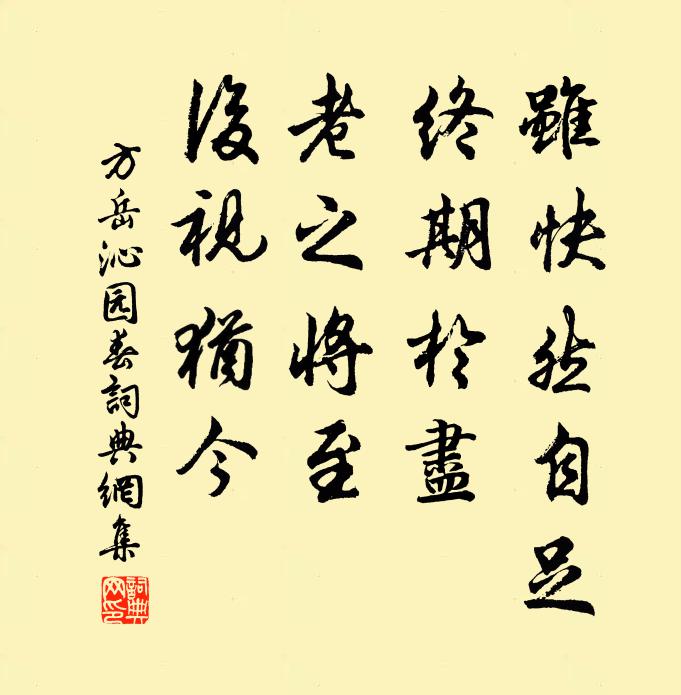 雖快然自足
終期於盡
老之將至
後視猶今
方岳沁园春詞典網集
詞典網印